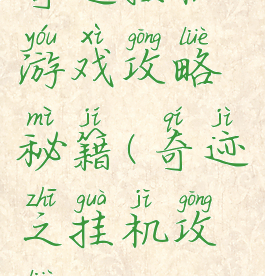 yóu xì gōng lüè
游戏攻略
mì jí qí jì
秘籍(奇迹
zhī guà jī gōng
之挂机攻